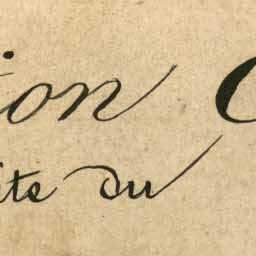 ion C
ite du